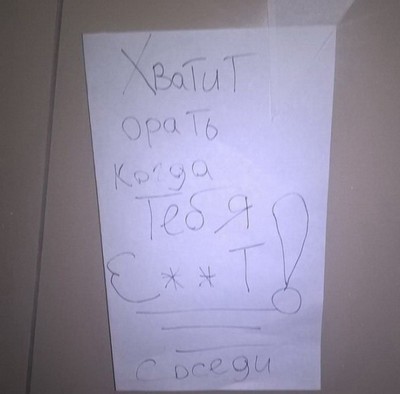 Хватит
орать
когда
тебя
Е**Т!
соседи